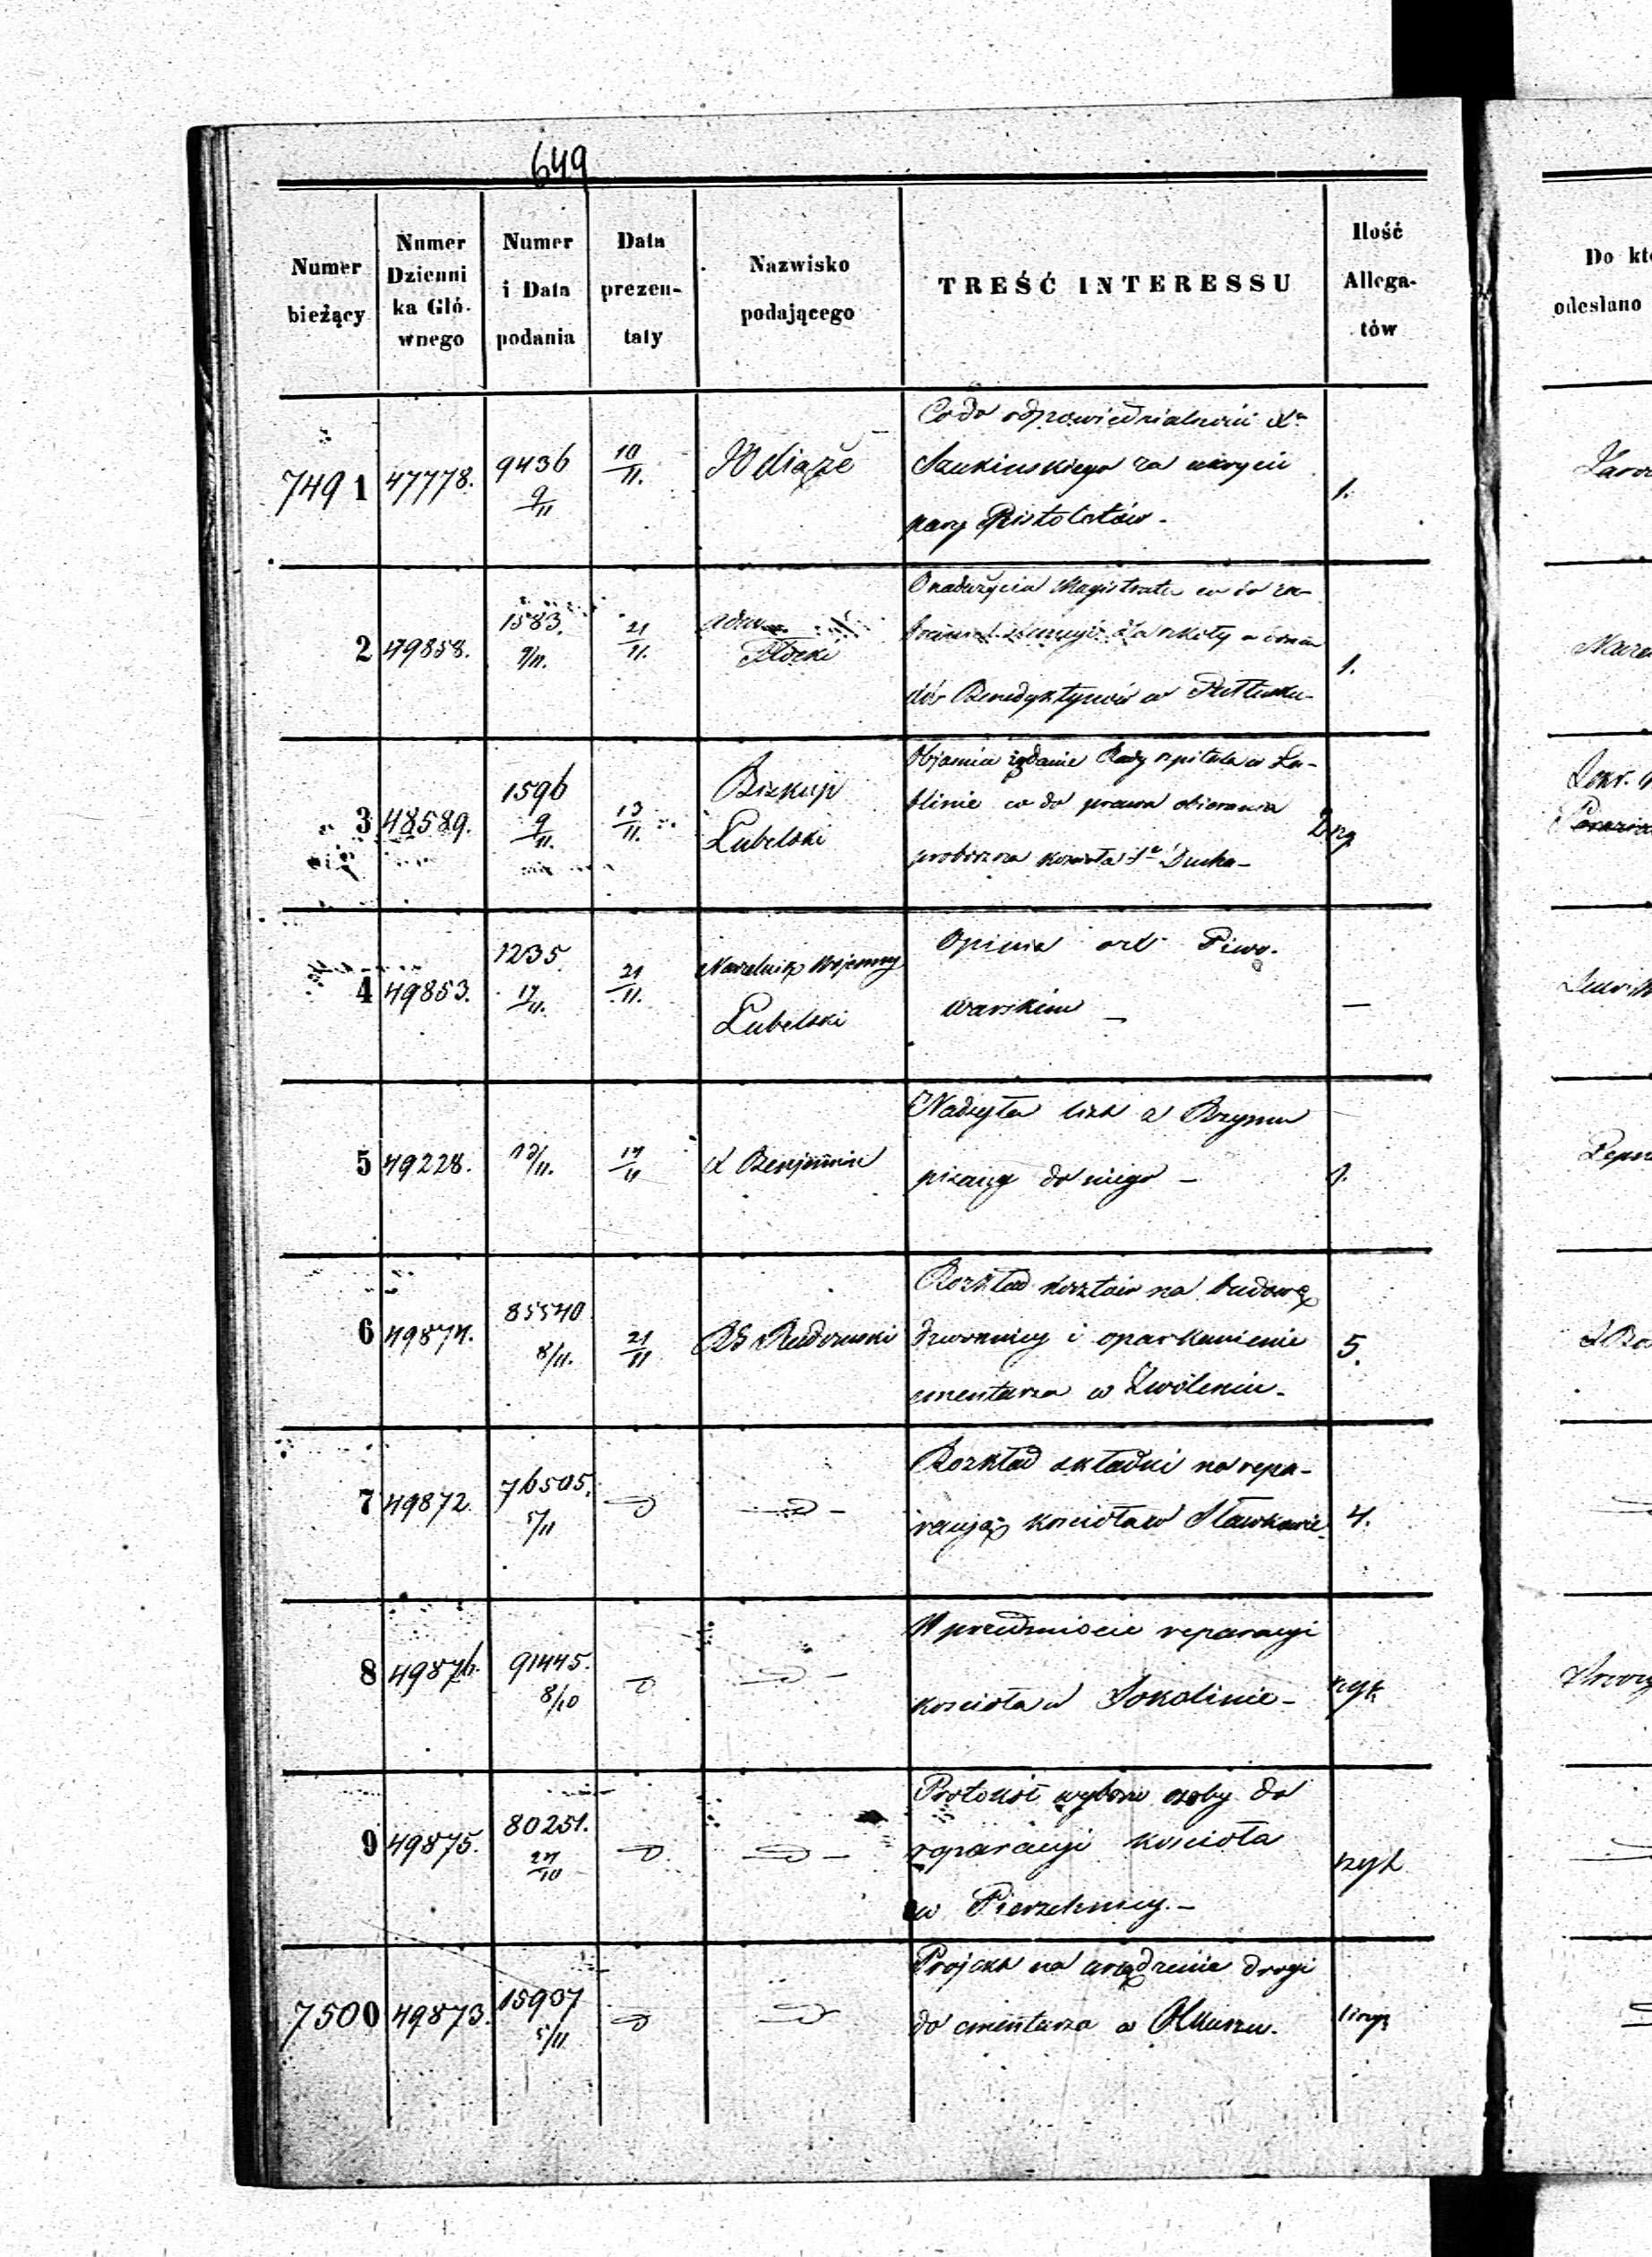 649
Numer bieżący
Numer Dzienni ka Głó- wnego
Numer i Data podania
Data prezen- taty
Nazwisko podającego
TREŚĆ INTERESSU
Ilość Allega- tów
Do kt
odesłano
7491 47778. 9436 9/11 10/11. W Xiąże
Co do odpowiedzialności Xa
Szukinskiego za ukrycie
pary Pistoletów - 1.
2 49858. 1583. 9/11. 21/11. Adm
Płocki
O nadużycia Magistratu co do
dla szkoły
dów Benedyktynów w Pułtusku - 1.
3 48589. 1596 9/11. 13/11. Biskup
Lubelski
Objaśnia żądanie Rady szpitala w Lu-
blinie co do prawa obierania
proboszcza kościoła Sgo Ducha -
4 49853. 1235 17/11. 21/11. Naczelnik Wojenny
Lubelski
Opinia o Xdz Piwo-
warskim - —
5 49228. 13/11. 17/11 X Benjamin
Nadsyła list z Rzymu
pisany do niego - 1.
6 49874. 85540 8/11. 21/11 RG Radomski
Rozkład kosztów na budowę
dzwonnicy i oparkanienie
cmentarza w Zwoleniu - 5.
7 49872 76505. 5/11
Rozkład składki na repa-
racyją kościoła w Sławkowie. 4.
8 49876. 91445. 8/10
W przedmiocie reparacyi
kościoła w Sokolinie -
9 49875. 80251. 27/10
Protokół wyboru osoby do
reparacyi kościoła
w Pierzchnicy. -
7500 49873. 15937 5/11
Projekt na urządzenie drogi
do cmentarza w Olkuszu.